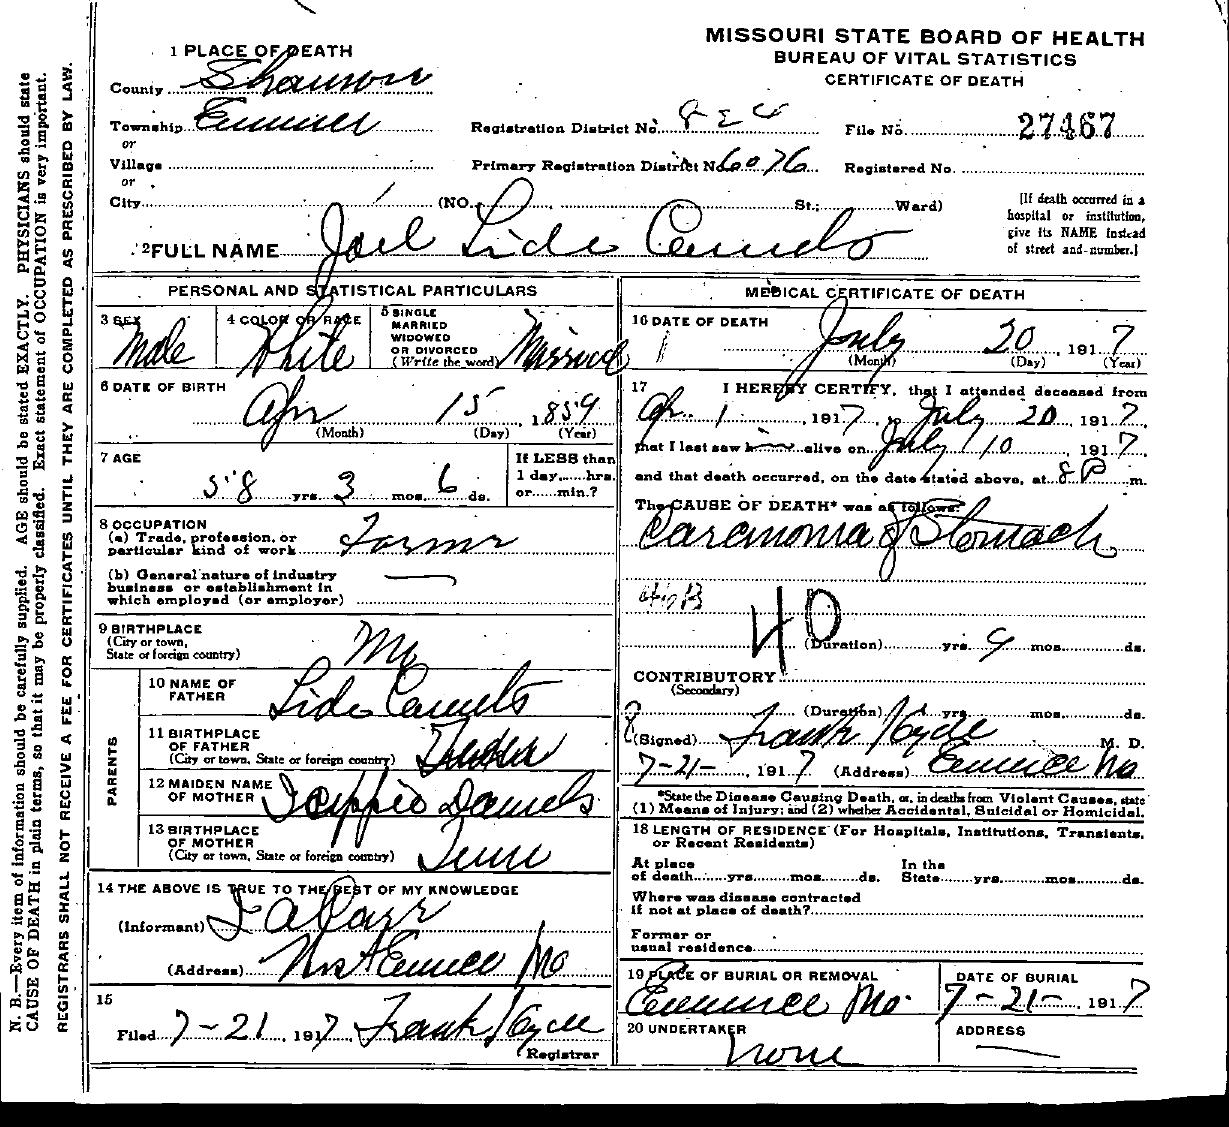 MISSOURI STATE BOARD OF HEALTH
BUREAU OF VITAL STATISTICS
CERTIFICATE OF DEATH
1 PLACE OF DEATH
County Shannon
Township
or
Village
or
City (NO. St.; Ward)
Registration District No.
File No. 27467
Primary Registration District No. 6076
Registered No.
[If death occurred in a
hospital or institution,
give its NAME instead
of street and number.]
2 FULL NAME Joel Lide
PERSONAL AND STATISTICAL PARTICULARS
3 SEX
Male
4 COLOR OR RACE
White
5 SINGLE
MARRIED
WIDOWED
OR DIVORCED
(Write the word) Married
6 DATE OF BIRTH
Apr 15, 1859
(Month) (Day) (Year)
7 AGE
58 yrs. 3 mos. 6 ds.
If LESS than
1 day,......hrs.
or......min.?
8 OCCUPATION
(a) Trade, profession, or
particular kind of work Farmer
(b) General nature of industry
business or establishment in
which employed (or employer)
9 BIRTHPLACE
(City or town,
State or foreign country) Mo
PARENTS
10 NAME OF
FATHER Lide
11 BIRTHPLACE
OF FATHER
(City or town, State or foreign country)
12 MAIDEN NAME
OF MOTHER Daniels
13 BIRTHPLACE
OF MOTHER
(City or town, State or foreign country) Tenn
14 THE ABOVE IS TRUE TO THE BEST OF MY KNOWLEDGE
(Informant)
(Address) Mo
15
Filed 7-21, 1917 Frank Hyde
Registrar
MEDICAL CERTIFICATE OF DEATH
16 DATE OF DEATH
July 20, 1917
(Month) (Day) (Year)
17 I HEREBY CERTIFY, that I attended deceased from
Apr. 1, 1917, July 20 1917,
that I last saw him alive on July 10, 1917,
and that death occurred, on the date stated above, at 8 P m.
The CAUSE OF DEATH* was as follows:
Carcinoma of Stomach
40
(Duration) yrs. 9 mos. ds.
CONTRIBUTORY
(Secondary)
(Duration) yrs. mos. ds.
(Signed) Frank Hyde M. D.
7-21-, 1917 (Address) Eminence Mo
*State the Disease Causing Death, or, in deaths from Violent Causes, state
(1) Means of Injury; and (2) whether Accidental, Suicidal or Homicidal.
18 LENGTH OF RESIDENCE (For Hospitals, Institutions, Transients,
or Recent Residents)
At place
of death......yrs......mos......ds.
In the
State......yrs......mos......ds.
Where was disease contracted
if not at place of death?
Former or
usual residence
19 PLACE OF BURIAL OR REMOVAL
Eminence Mo.
DATE OF BURIAL
7-21-, 1917
20 UNDERTAKER
None
ADDRESS
N. B.—Every item of information should be carefully supplied. AGE should be stated EXACTLY. PHYSICIANS should state
CAUSE OF DEATH in plain terms, so that it may be properly classified. Exact statement of OCCUPATION is very important.
REGISTRARS SHALL NOT RECEIVE A FEE FOR CERTIFICATES UNTIL THEY ARE COMPLETED AS PRESCRIBED BY LAW.